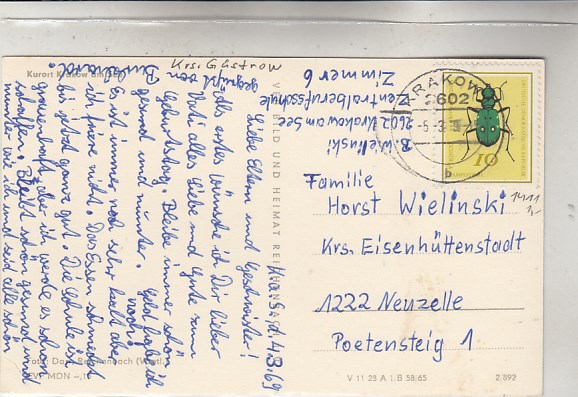 Kurort Krakow am See
Krs. Güstrow
B. Wielinski
2602 Krakow am See
Zentralberufsschule
Zimmer 6
Krakow, d. 4.3.69
Liebe Eltern und Geschwister!
Als erstes wünsche ich Dir lieber
Vati alles Liebe und Gute zum
Geburtstag. Bleibe immer schön
gesund und munter. Geld habe ich
noch!
Es ist immer noch sehr kalt aber
ich friere nicht. Das Essen schmeckt
bis jetzt ganz gut. Die Schule ist
grauenhaft, aber ich werde es schon
schaffen. Bleibt schön gesund und
munter wie ich und seid alle schön
gegrüßt von
KRAKOW
2602
-5.3.
b
10
Familie
Horst Wielinski
Krs. Eisenhüttenstadt
1222 Neuzelle
Poetensteig 1
1411
1,-
VERLAG BILD UND HEIMAT REICHENBACH
Reichenbach (Vogtl.)
EVP MDN -,
V 11 28 A 1 B 58/65
2/892